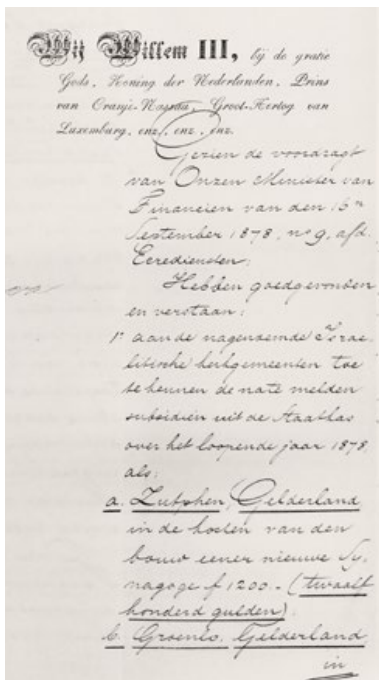 Wij Willem III, bij de gratie
Gods, Koning der Nederlanden, Prins
van Oranje-Nassau, Groot-Hertog van
Luxemburg, enz., enz., enz.
Gezien de voordragt
van Onzen Minister van
Financien van den 16en
September 1878, no 9, afd.
Eerediensten;
Hebben goedgevonden
en verstaan:
1o aan de nagenoemde Israe-
litische kerkgemeenten toe
te kennen de na te melden
subsidien uit de Staatkas
over het loopende jaar 1878,
als:
a. Zutphen, Gelderland
in de kosten van den
bouw eener nieuwe Sy-
nagoge f 1200.- (twaalf
honderd gulden);
b. Groenlo, Gelderland,
in